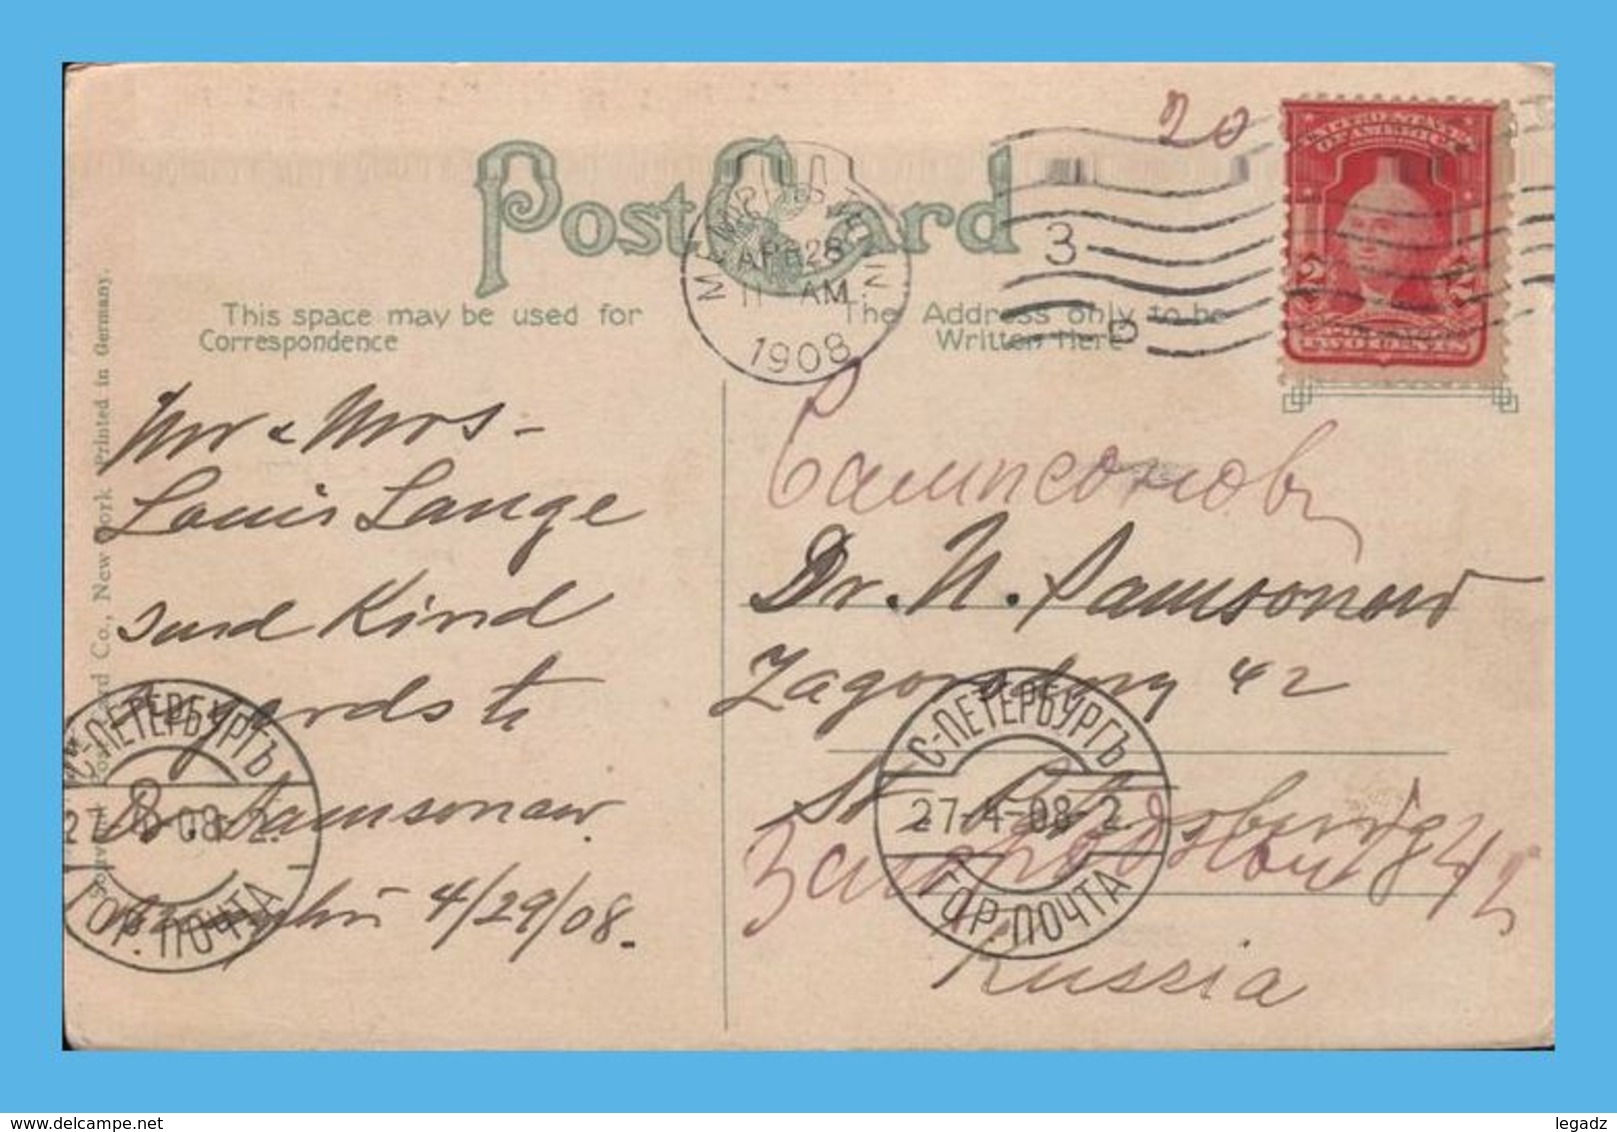 Post Card
This space may be used for
Correspondence
The Address only to be
Written Here
MEMPHIS, TENN.
APR 28
11 AM
1908
3
D
20
UNITED STATES
OF AMERICA
2 2
TWO CENTS
Mr & Mrs -
Louis Lange
send Kind
regards to
Dr. Samsonow.
Memphis 4/29/08.
Самсонову
Dr. N. Samsonow
Zagorodny 42
St Petersburg
Загородный 42
Russia
С-ПЕТЕРБУРГЪ
27-4-08-2
ГОР. ПОЧТА
С-ПЕТЕРБУРГЪ
27-4-08-2
ГОР. ПОЧТА
Souvenir Post Card Co., New York Printed in Germany.
www.delcampe.net
legadz